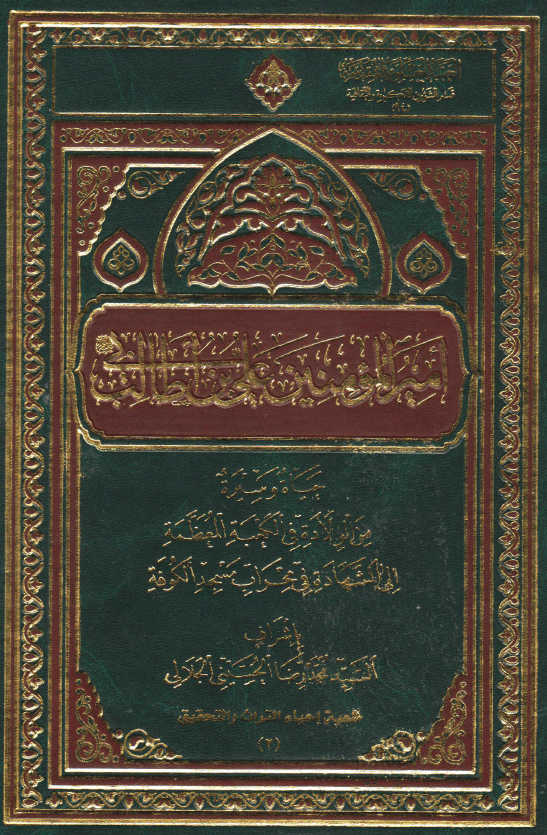 قسم الشؤون الفكرية والثقافية
أمير المؤمنين علي بن أبي طالب
حياة وسيرة
من الولادة في الكعبة المعظمة
إلى الشهادة في محراب مسجد الكوفة
بإشراف
السيد محمد رضا الحسيني الجلالي
شعبة إحياء التراث والتحقيق
(٢)